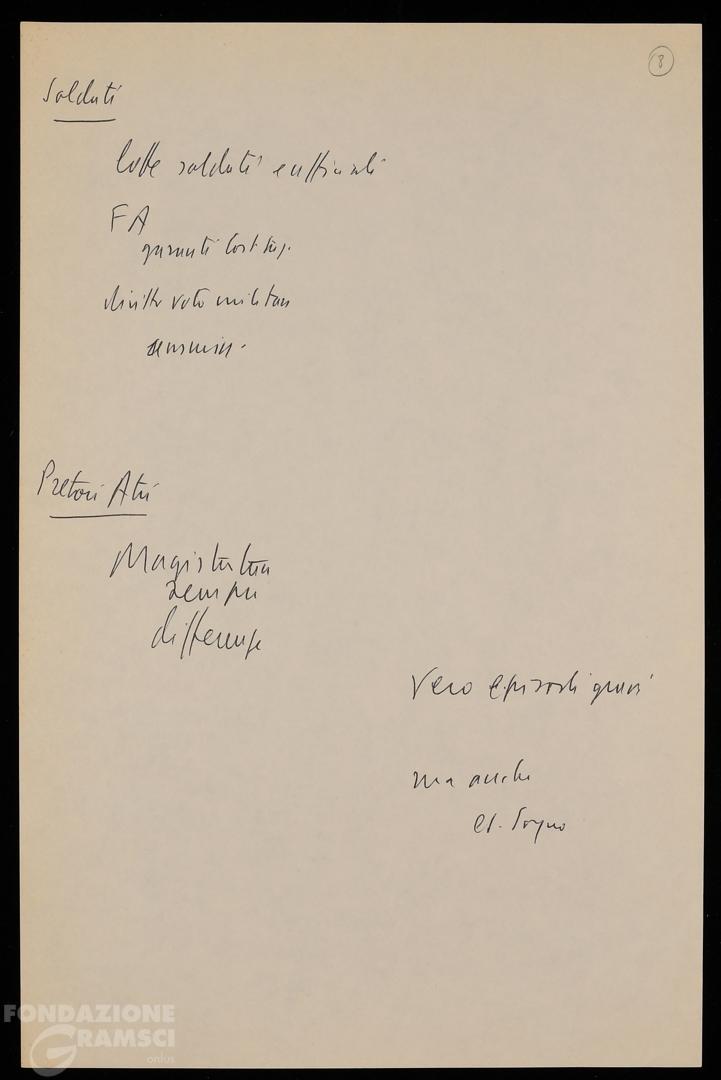 8
Soldati
lotte soldati e ufficiali
FA
garanti Cost.
diritto voto militari
Pretori Atri
Magistratura
sempre
differenze
Vero episodi gravi
ma anche
es. Sogno
FONDAZIONE
GRAMSCI
onlus